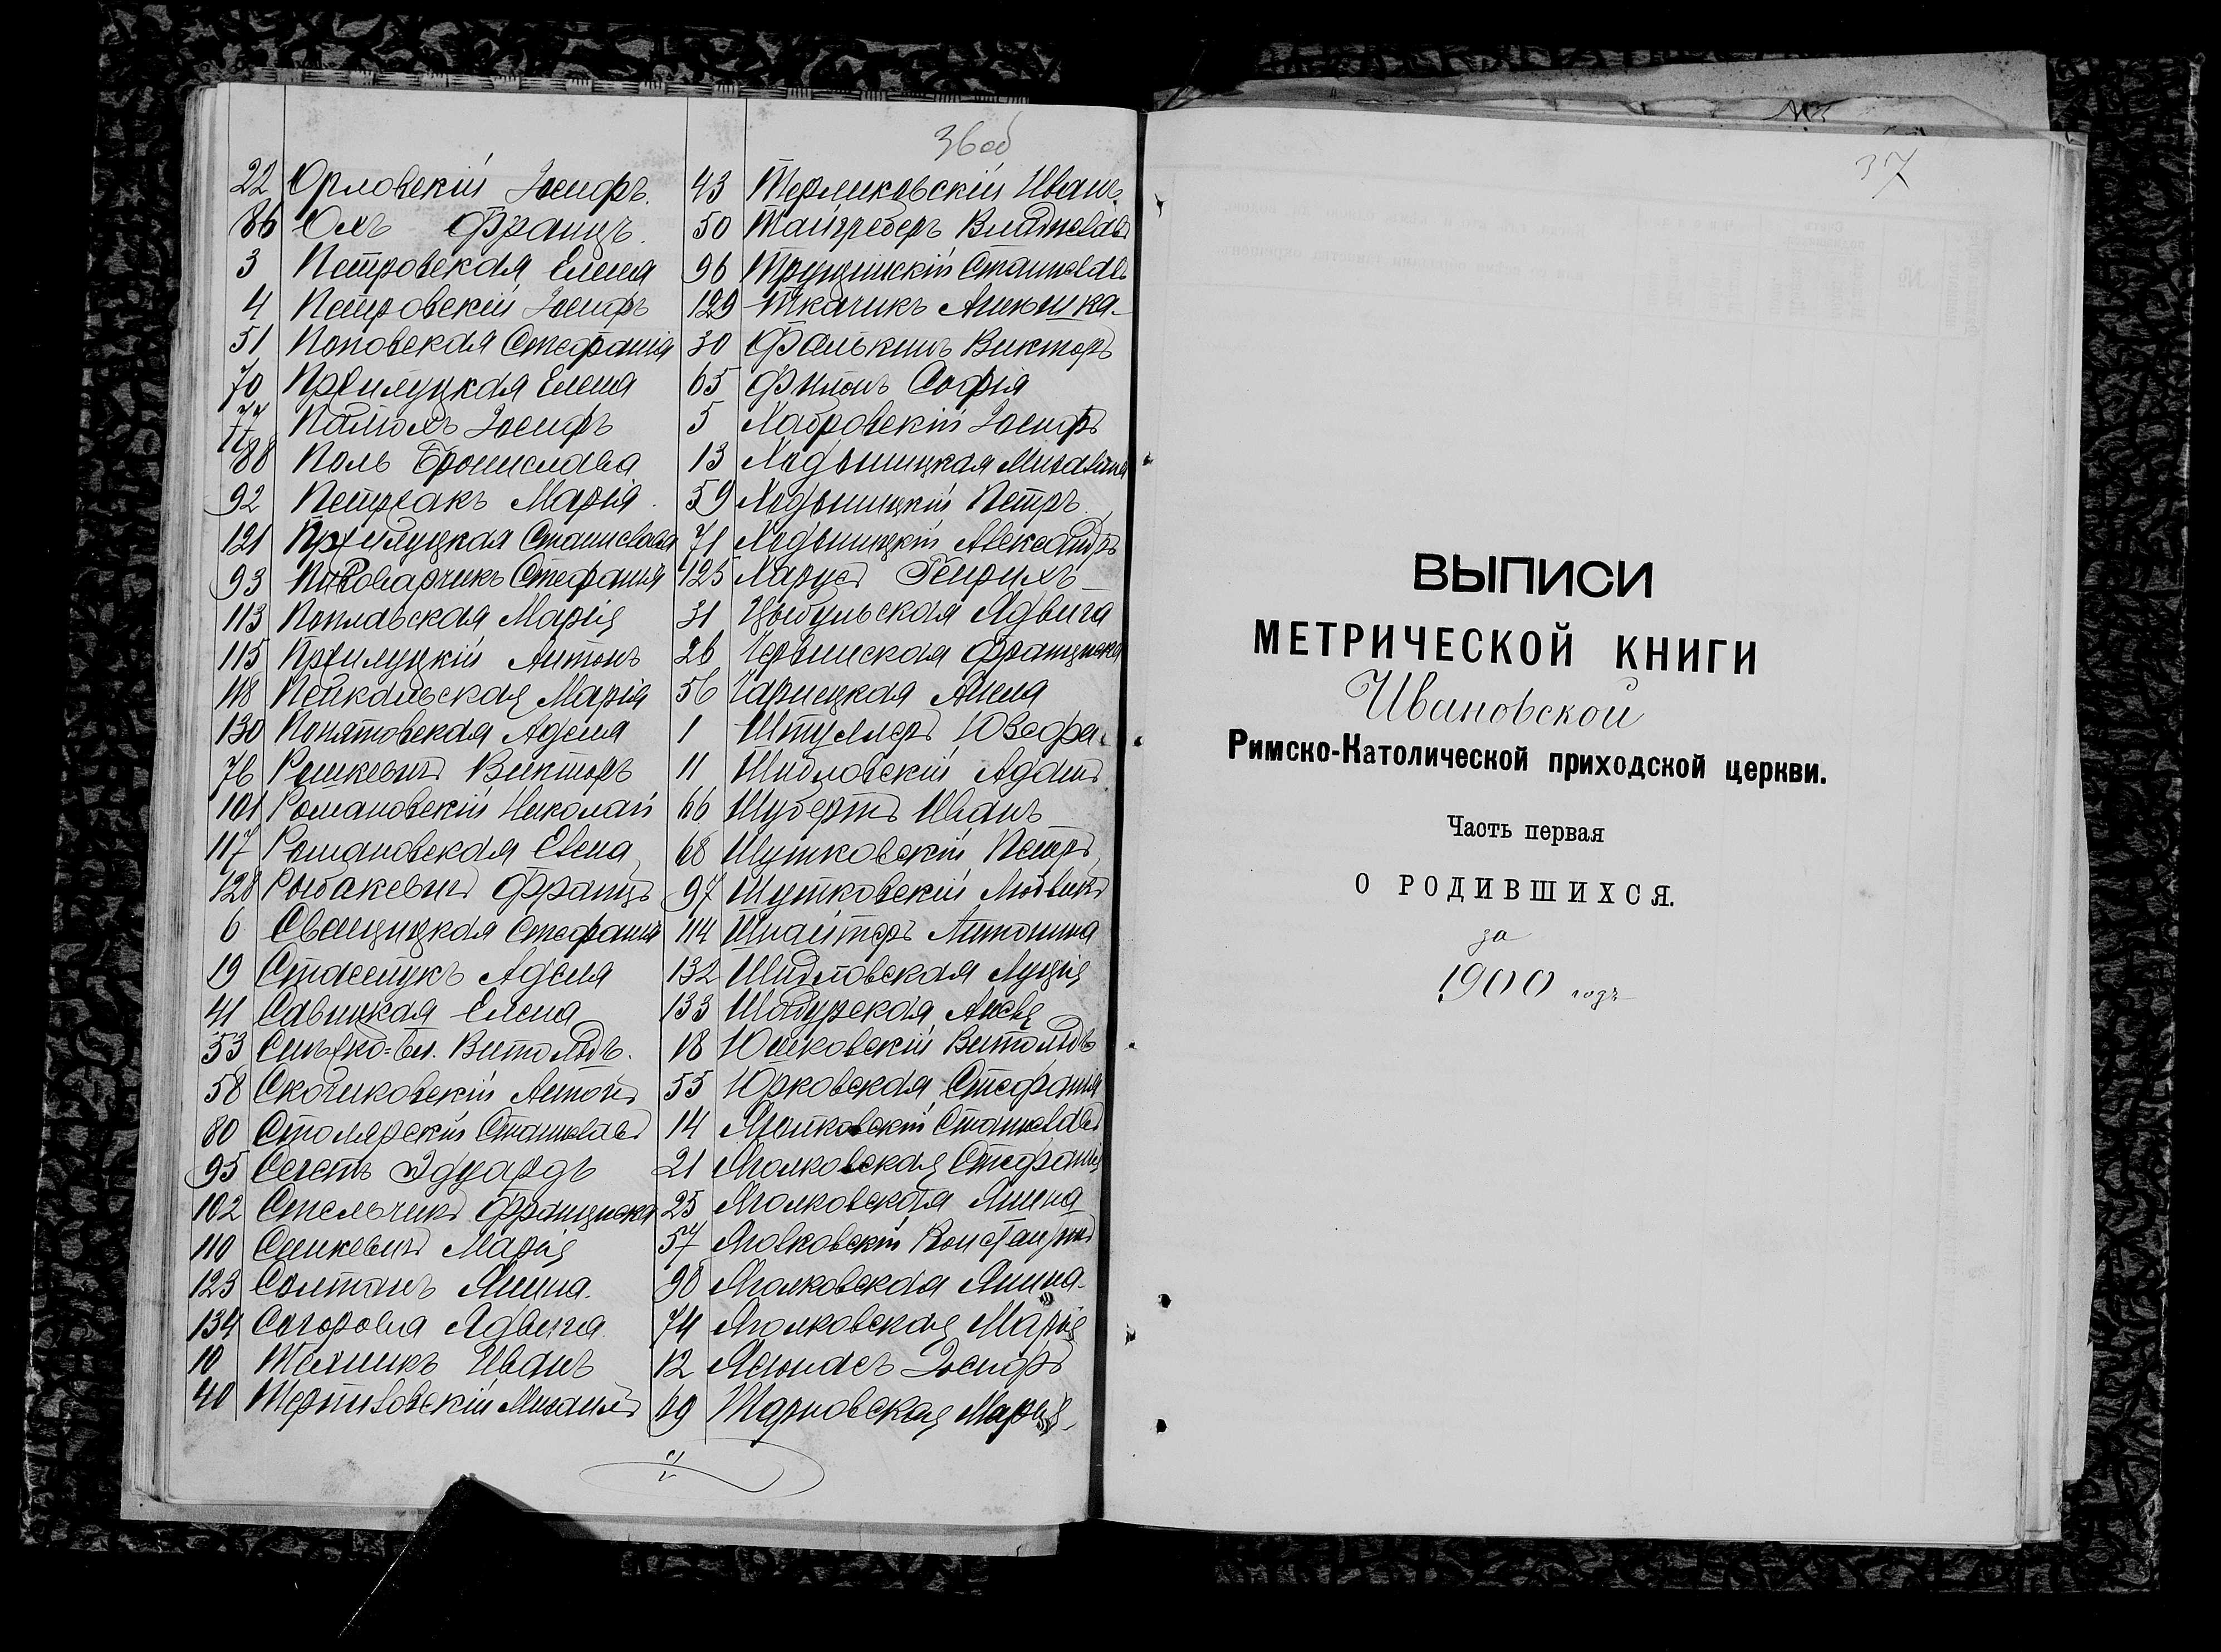 36 об
22 Орловскій Іосифъ.
86 Охъ Францъ.
3 Петровская Елена
4 Петровскій Іосифъ
51 Поповская Стефанія
70 Прхилуцкая Елена
77 Іосифъ
88 Поль Брониславa
92 Петржакъ Марія
121 Прхилуцкая Станислава
93 Пивоварчикъ Стефанія
113 Поплавская Марія
115 Прхилуцкій Антонъ
118 Пейкальская Марія
130 Понятовская Аделя
76 Рошкевичъ Викторъ
101 Романовскій Николай
117 Романовская Елена
128 Рыбакевичъ Францъ
6 Свенцицкая Стефанія
19 Стасюкъ Аделя
41 Савицкая Елена
53 Витольдъ.
58 Антонъ
80 Столярскій Станиславъ
95 Эдуардъ
102 Стельчикъ Франциска
110 Сенкевичъ Марія
123 Солтанъ Янина.
134 Ядвига
10 Техникъ Иванъ
40 Михаилъ
43 Терликовскій Иванъ
50 Тайгреберъ Владиславъ
96 Станиславъ
129 Ткачикъ
30 Фалькинъ Викторъ
65 Софія
5 Хабровскій Іосифъ
13 Ходыницкая Михалина
59 Ходыницкій Петръ
71 Ходыницкій Александръ
125 Генрихъ
31 Цыбульская Ядвига
26 Червинская Франциска
56 Чарнецкая Анеля
1 Штуллеръ Юзефа
11 Шидловскій Адамъ
66 Шубертъ Иванъ
68 Шутковскій Петръ
97 Шутковскій Людвикъ
114 Шнайтеръ Антонина
132 Шидловская Луція
133 Шадурская
18 Юшковскій Витольдъ
55 Юрковская Стефанія
14 Яголковскій Станиславъ
21 Яголковская Стефанія
25 Яголковская Янина
57 Яголковскій Константинъ
98 Яголковская Янина
74 Яголковская Марія
12 Іосифъ
69 Тарновская Марія
37
ВЫПИСИ
МЕТРИЧЕСКОЙ КНИГИ
Ивановской
Римско-Католической приходской церкви.
Часть первая
О РОДИВШИХСЯ.
за
1900 годъ